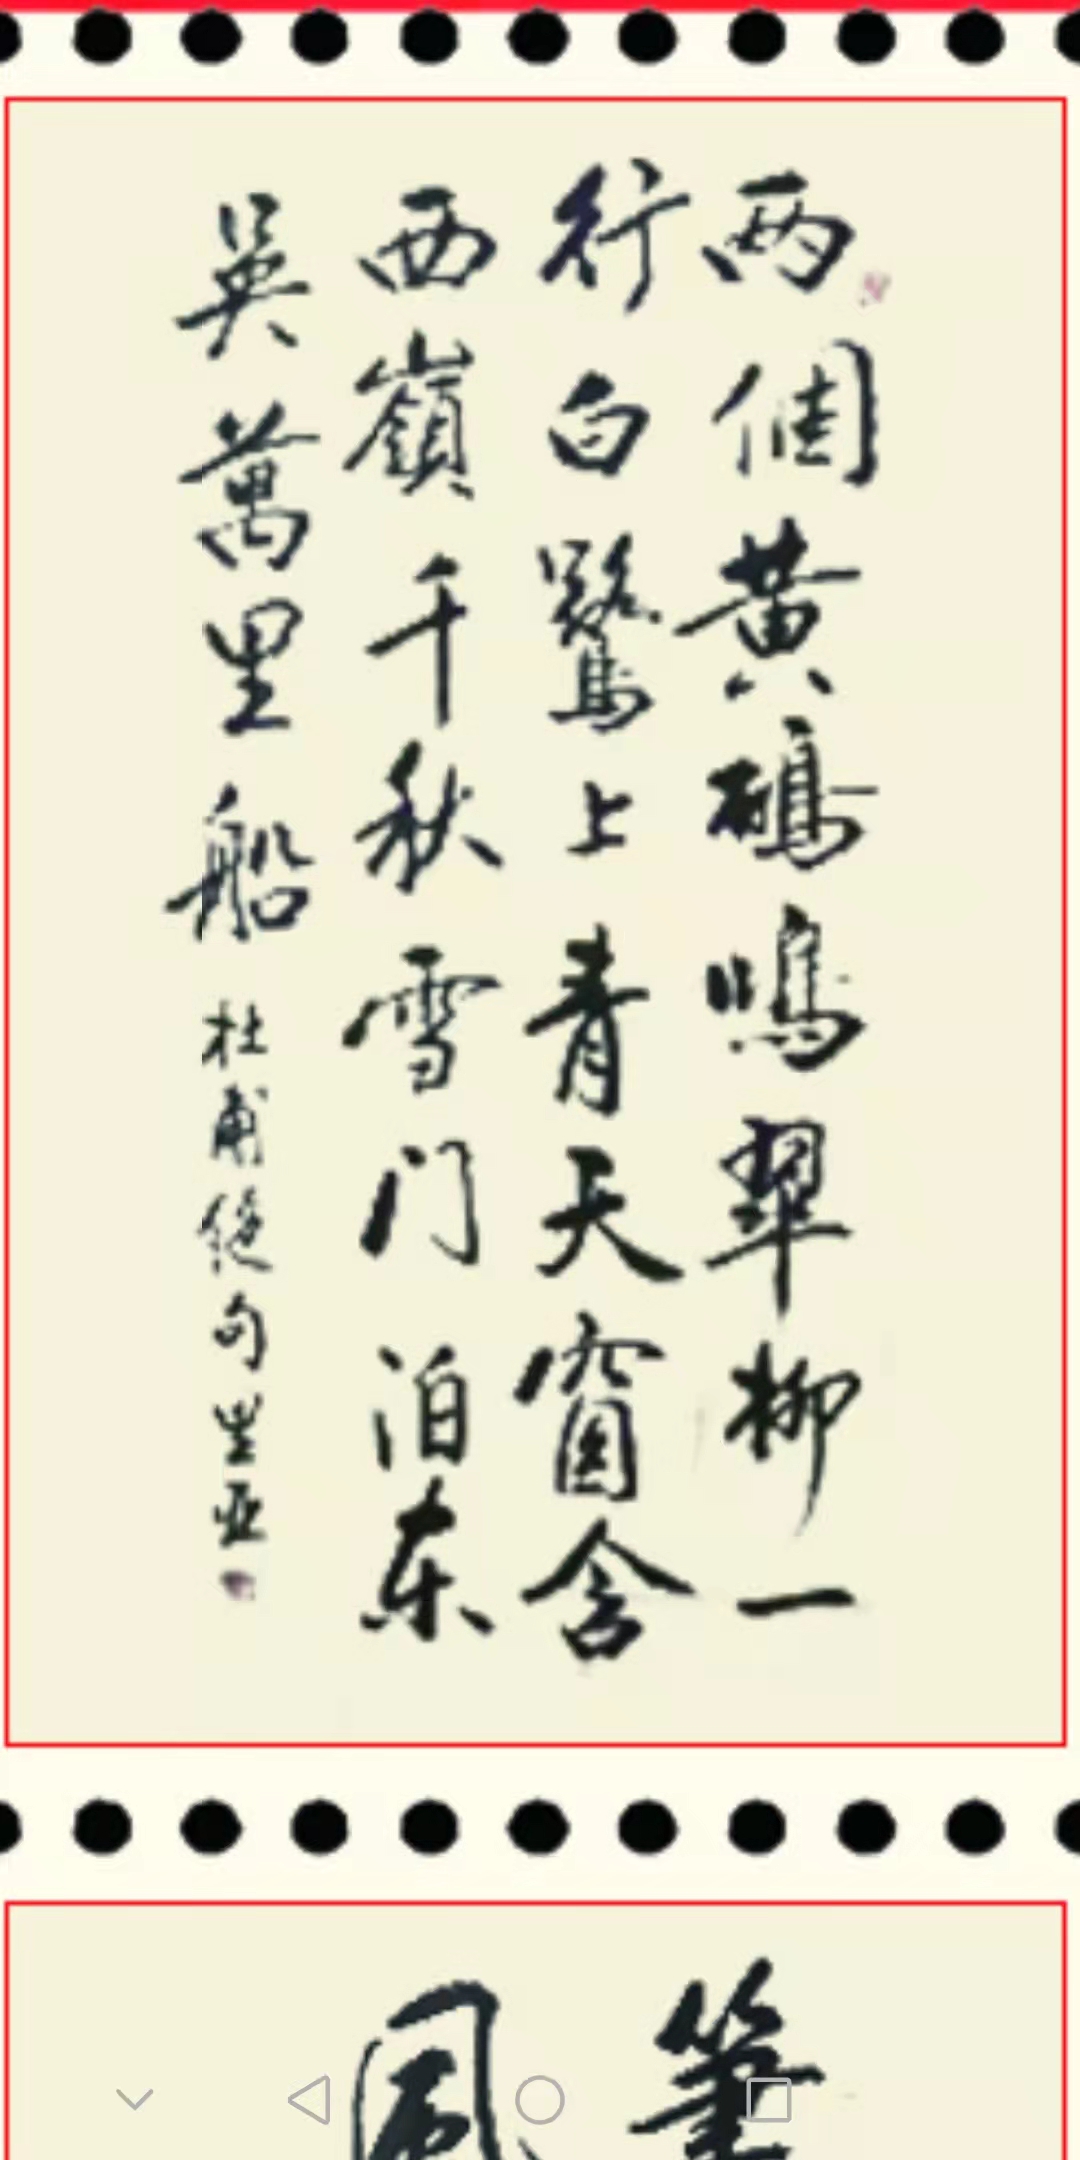 两個黃鸝鳴翠柳一
行白鷺上青天窗含
西嶺千秋雪门泊东
吳萬里船 杜甫絕句
筆